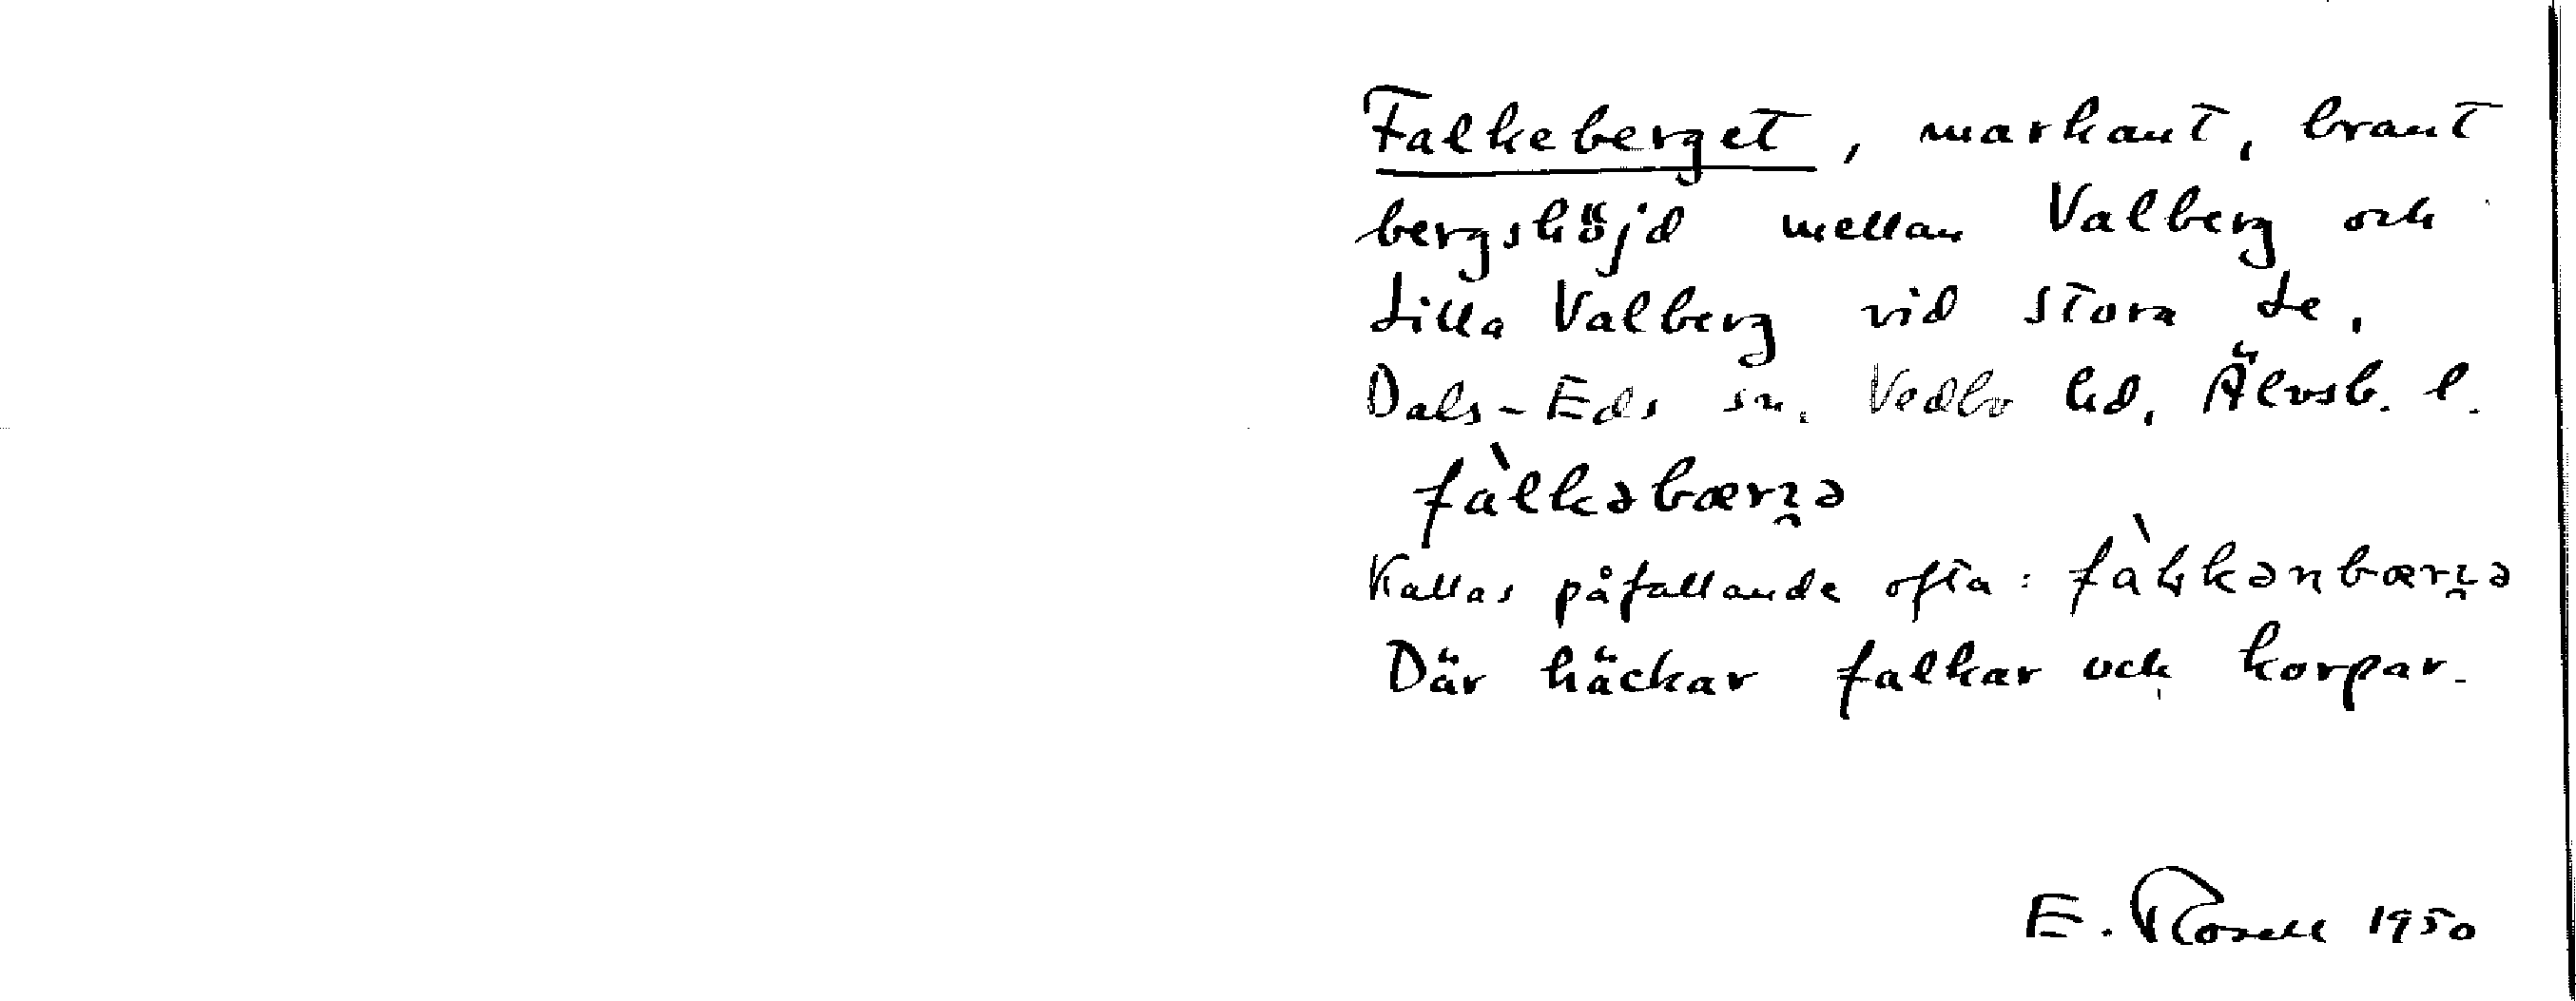 Falkeberget, markant, brant
bergshöjd mellan Valberg och
Lilla Valberg vid Stora Le,
Dals-Eds sn. Vedbo hd, Älvsb. l.
fàlkəbærʒ̑ə
Kallas påfallande ofta: fàłkənbærʒ̑ə
Där häckar falkar och korpar.
E. Rosell 1950